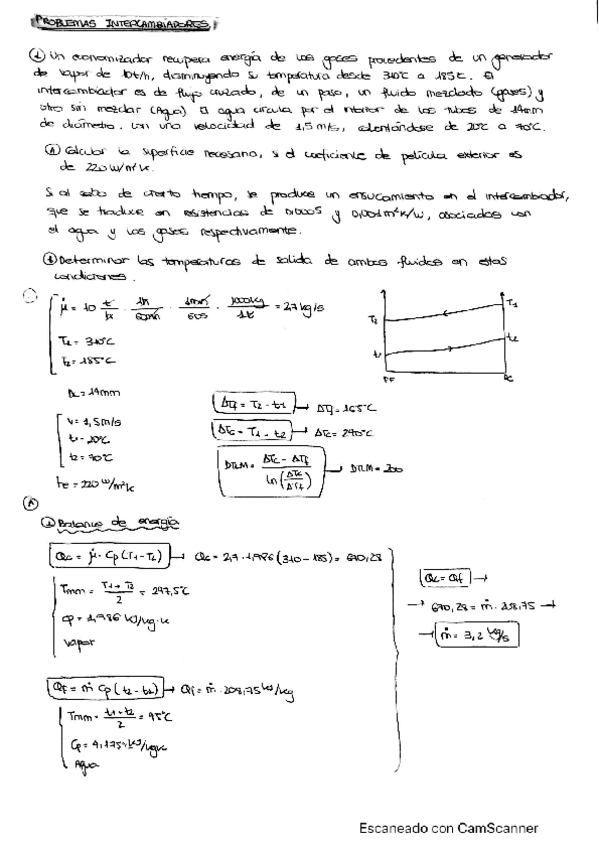 PROBLEMAS INTERCAMBIADORES
① Un economizador recupera energía de los gases procedentes de un generador
de vapor de 10t/h, disminuyendo su temperatura desde 310ºC a 185ºC. El
intercambiador es de flujo cruzado, de un paso, un fluido mezclado (gases) y
otro sin mezclar (Agua). El agua circula por el interior de los tubos de 14mm
de diámetro. con una velocidad de 1,5m/s, calentándose de 20ºC a 70ºC.
Ⓐ Calcular la superficie necesaria, si el coeficiente de película exterior es
de 220 W/m²K.
Si al cabo de cierto tiempo, se produce un ensuciamiento en el intercambiador,
que se traduce en resistencias de 0,0005 y 0,001 m²K/W, asociados con
el agua y los gases respectivamente.
Determinar las temperaturas de salida de ambos fluidos en estas
condiciones.
ṁ = 10 t/h · 1h/60min · 1min/60s · 1000kg/1t = 2,7 kg/s
T1 T2 t2 t1
T1 = 310ºC
T2 = 185ºC
FF FC
D = 14mm
ΔTf = T2 - t1 → ΔTf = 165ºC
v = 1,5m/s
ΔTc = T1 - t2 → ΔTc = 240ºC
t1 = 20ºC
t2 = 70ºC
DTLM = ΔTc - ΔTf / ln(ΔTc/ΔTf) → DTLM = 200
he = 220 W/m²K
Ⓐ
① Balance de energía
Qc = ṁ · Cp (T1 - T2) → Qc = 2,7 · 1,986 (310 - 185) = 670,28
Tmm = T1 + T2 / 2 = 247,5ºC
Qc = Qf →
Cp = 1,986 KJ/kg·K
→ 670,28 = ṁ · 208,75 →
Vapor
→ ṁ = 3,2 kg/s
Qf = ṁ Cp (t2 - t1) → Qf = ṁ · 208,75 KJ/kg
Tmm = t1 + t2 / 2 = 45ºC
Cp = 4,175 KJ/kgK
Agua
Escaneado con CamScanner